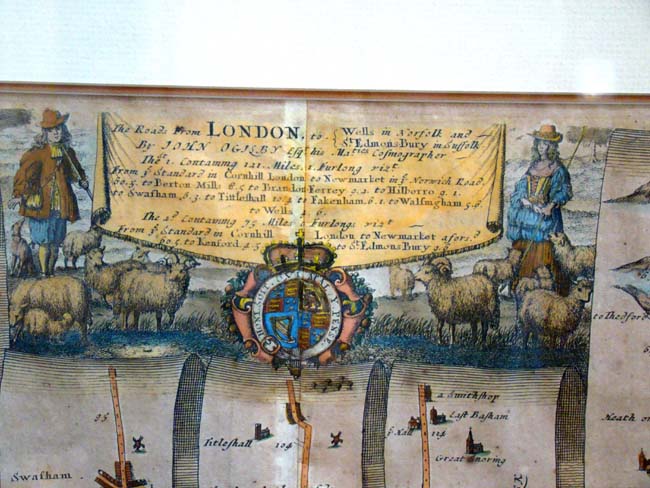 The Road From LONDON, to Wells in Norfolk and
St Edmons Bury in Suffolk
By JOHN OGILBY Esqr his Maties Cosmographer
The 1. Containing 121. Miles, 1 Furlong vizt
From ye Standard in Cornhill London to Newmarket in ye Norwich Road
60.5. to Barton Mills 8.5 to Brandon Ferrey 9.2. to Hilboro 9.1.
to Swafham 6.3. to Tittleshall to Fakenham 6.1. to Walsingham
to Wells
The 2d Containing 73. Miles Furlongs vizt
From ye Standard in Cornhill London to Newmarket afore:
60.5. to Kenford 4.3. to St Edmons Bury
95
Swafham
Titleshall
104
a Smiths shop
East Basham
ye Hall
114
Great Snoring
to Thedford
Heath on